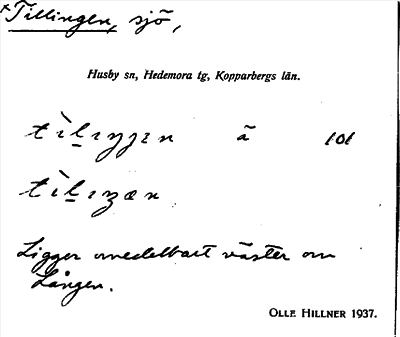 Tillingen, sjö,
Husby sn, Hedemora tg, Kopparbergs län.
ã 101
Ligger omedelbart väster om
Lången.
OLLE HILLNER 1937.